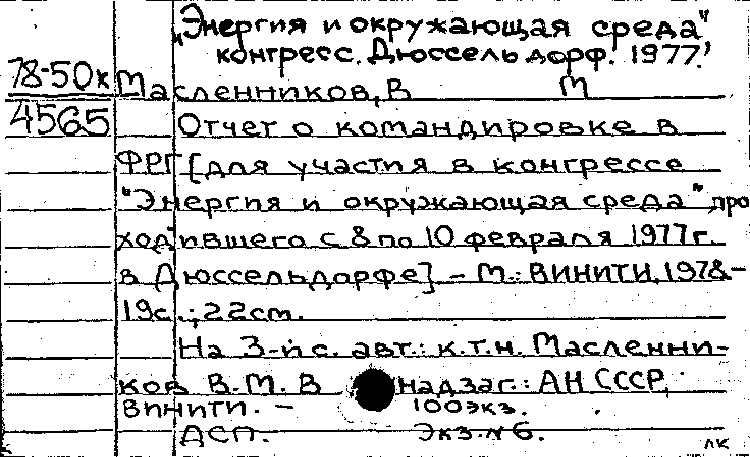 „Энергия и окружающая среда"
конгресс. Дюссельдорф. 1977.
78-50к Масленников, В М
4565 Отчет о командировке в
ФРГ [для участия в конгрессе
"Энергия и окружающая среда", про
ходившего с 8 по 10 февраля 1977г.
в Дюссельдорфе] – М.: ВИНИТИ, 1978.–
19с.; 22см.
На 3-й с. авт.: к.т.н. Масленни-
ков В.М. В надзаг.: АН СССР,
ВИНИТИ. – 100экз.
ДСП. Экз. № 6.
лк